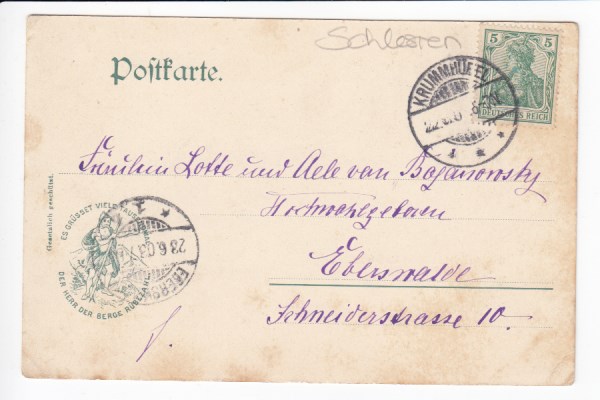 Schlesien
Postkarte.
5
DEUTSCHES REICH
KRUMMHÜBEL
Fräulein Lotte und Aele van Boganowsky
Hochwohlgeboren
Eberswalde
Schneiderstrasse 10.
Gesetzlich geschützt.
ES GRÜSSET VIEL
DER HERR DER BERGE RÜBEZAHL
23.6.03
EBERSW
f.